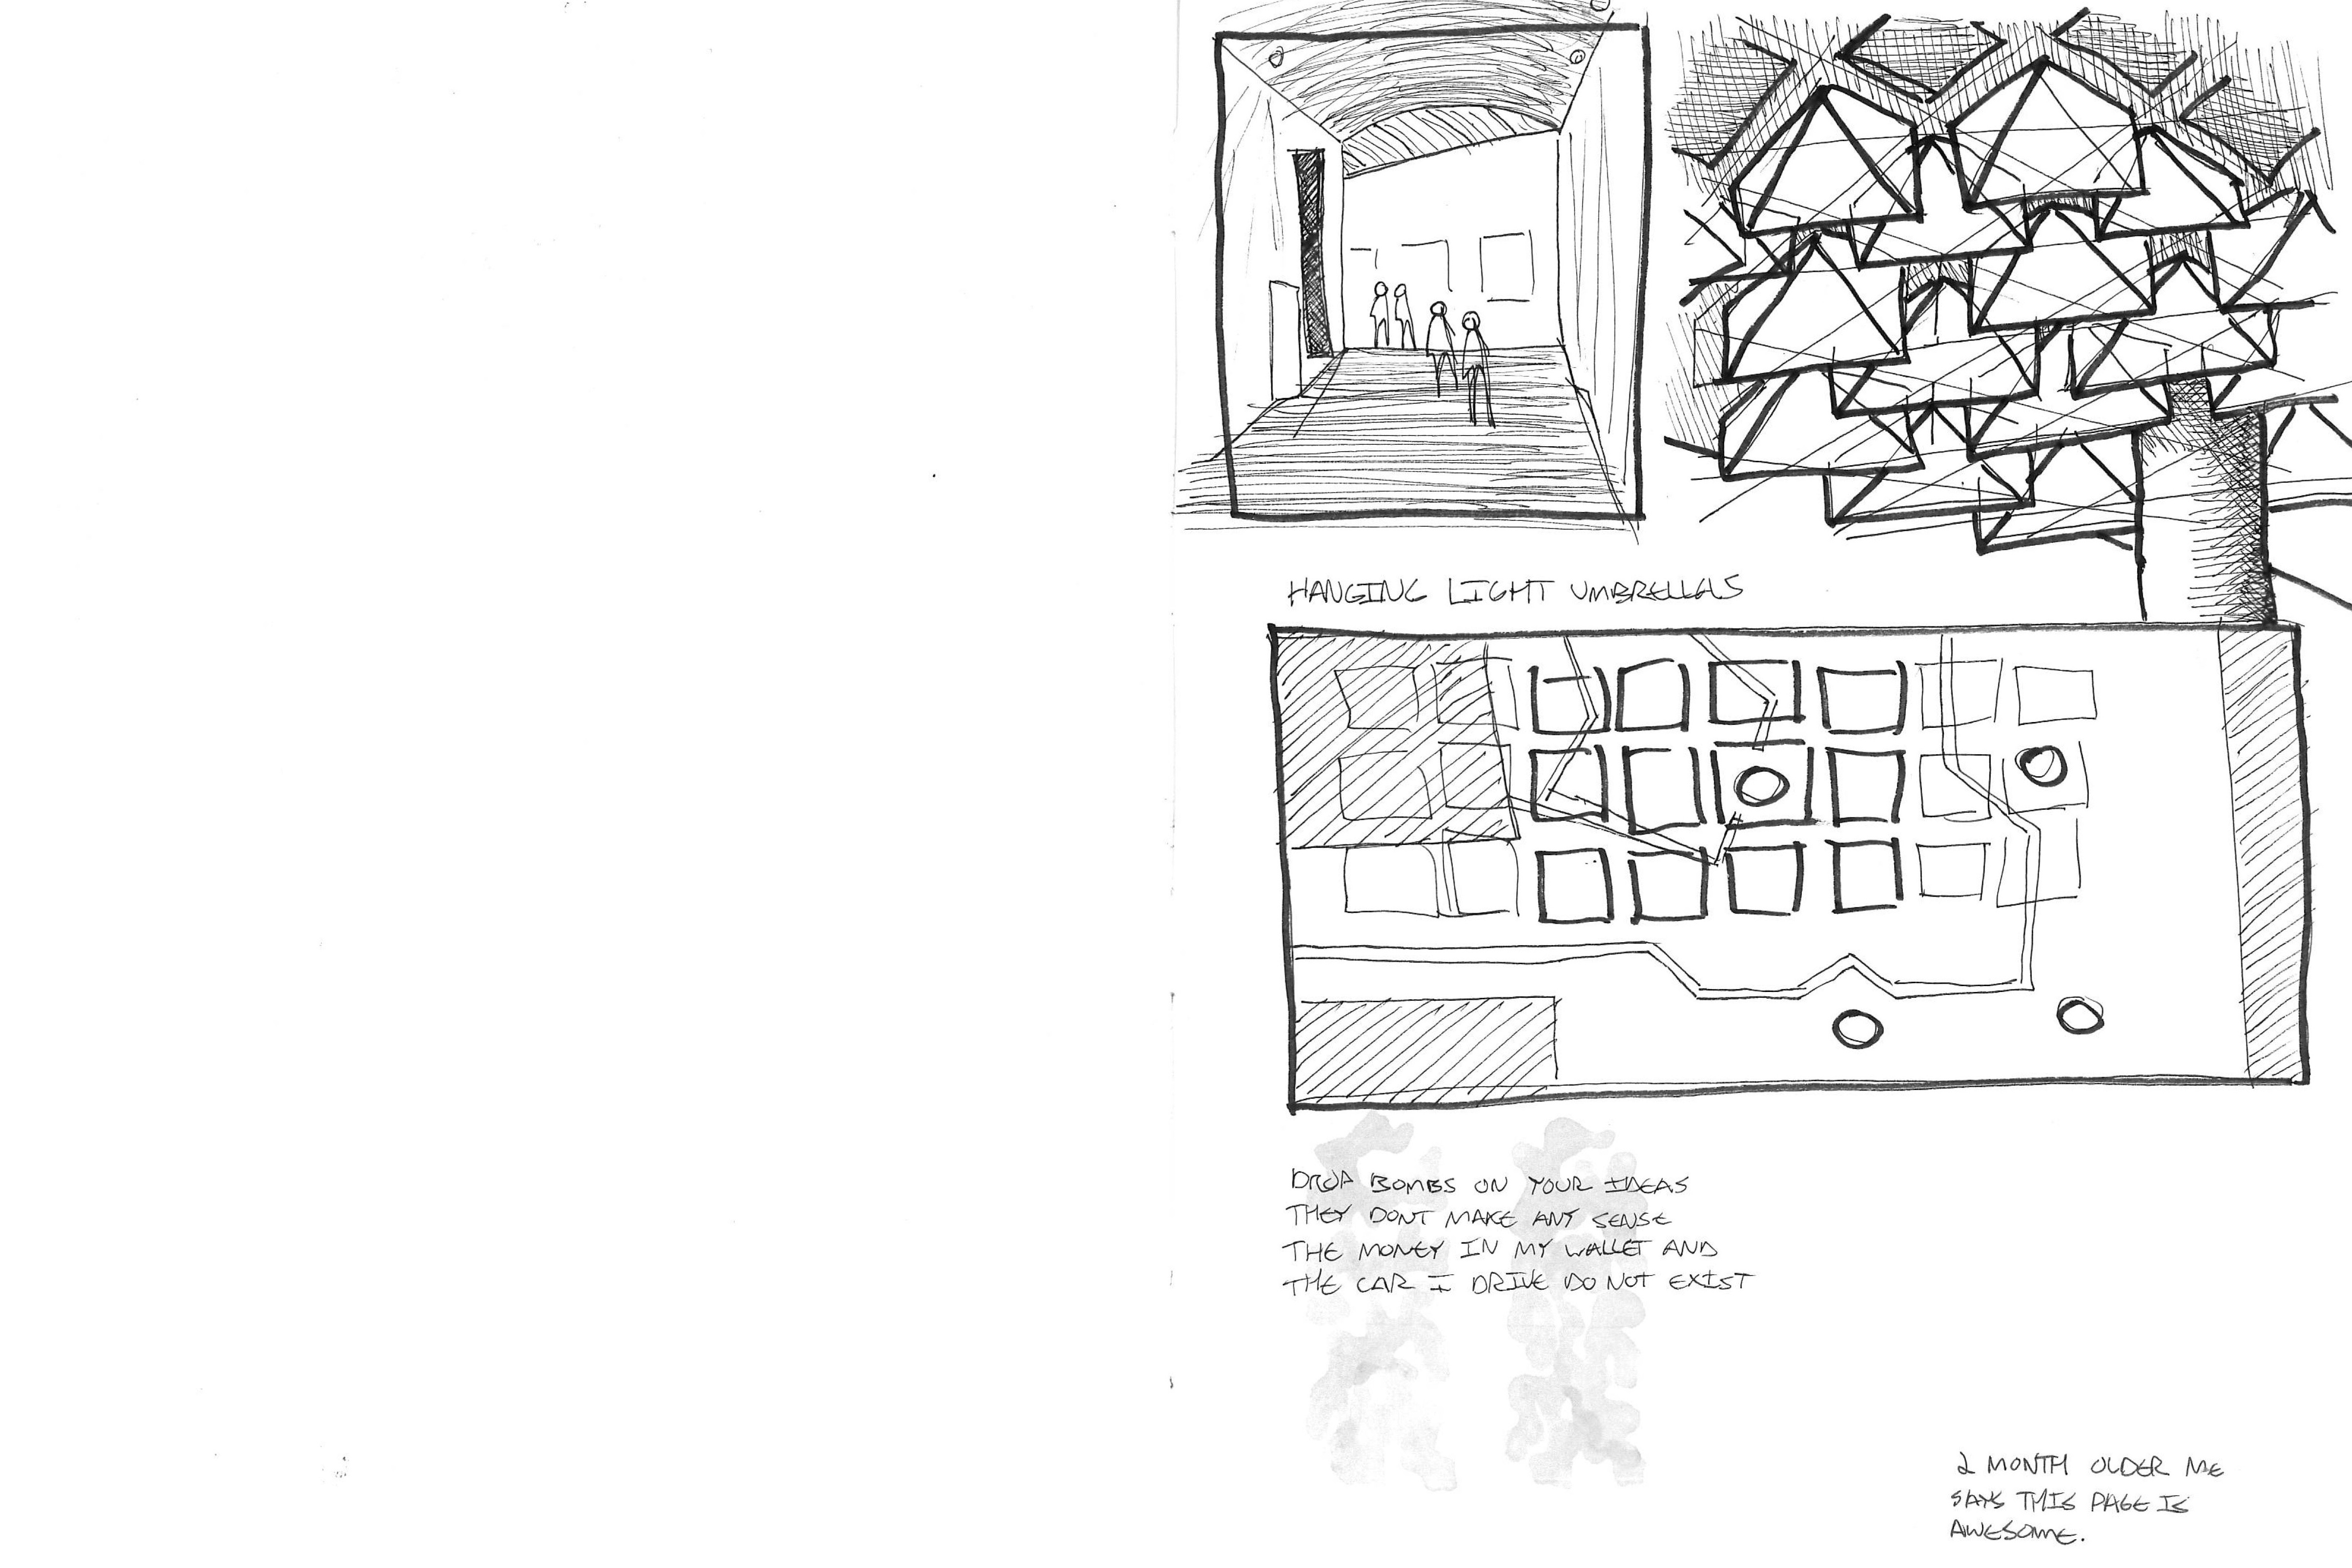 HANGING LIGHT UMBRELLAS
DROP BOMBS ON YOUR IDEAS
THEY DONT MAKE ANY SENSE
THE MONEY IN MY WALLET AND
THE CAR I DRIVE DO NOT EXIST
2 MONTH OLDER ME
SAYS THIS PAGE IS
AWESOME.